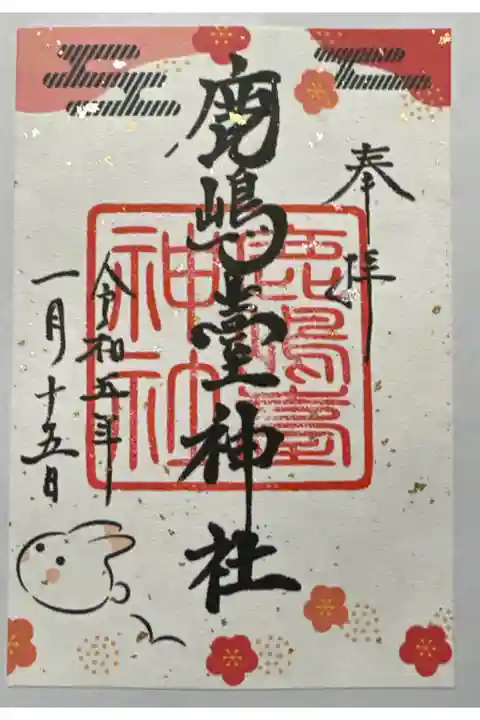 奉拝
鹿嶋臺神社
鹿嶋臺
神社
令和五年
一月十五日